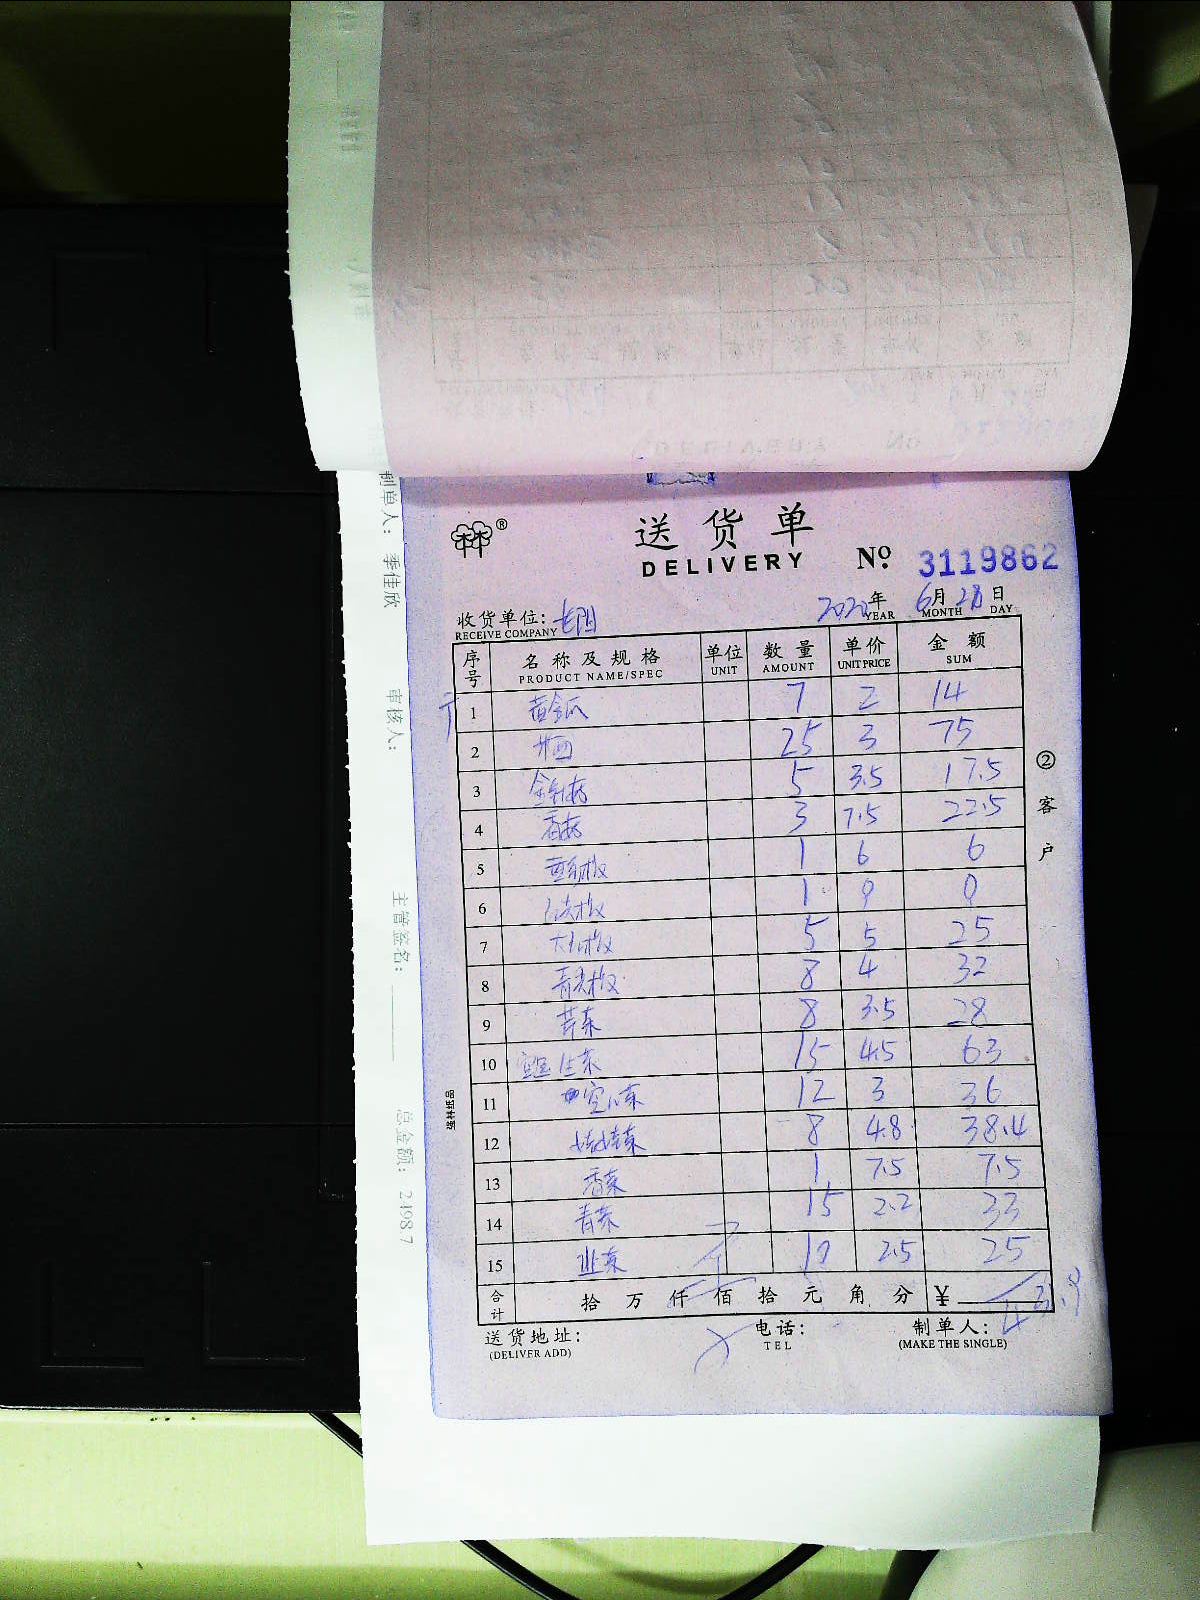 送货单
DELIVERY
№ 3119862
收货单位:
RECEIVE COMPANY
2020年 6月 28日
YEAR MONTH DAY
序号 名称及规格 单位 数量 单价 金额
PRODUCT NAME/SPEC UNIT AMOUNT UNIT PRICE SUM
1 黄金瓜 7 2 14
2 25 3 75
3 金针菇 5 3.5 17.5
4 香菇 3 7.5 22.5
5 1 6 6
6 1 9 9
7 5 5 25
8 8 4 32
9 芹菜 8 3.5 28
10 15 4.5 63
11 空心菜 12 3 36
12 8 4.8 38.4
13 香菜 1 7.5 7.5
14 青菜 15 2.2 33
15 韭菜 10 2.5 25
合计 拾 万 仟 佰 拾 元 角 分 ¥
送货地址:
(DELIVER ADD)
电话:
TEL
制单人:
(MAKE THE SINGLE)
② 客户
强林纸品
制单人: 季佳欣
审核人:
主管签名:
总金额: 24987